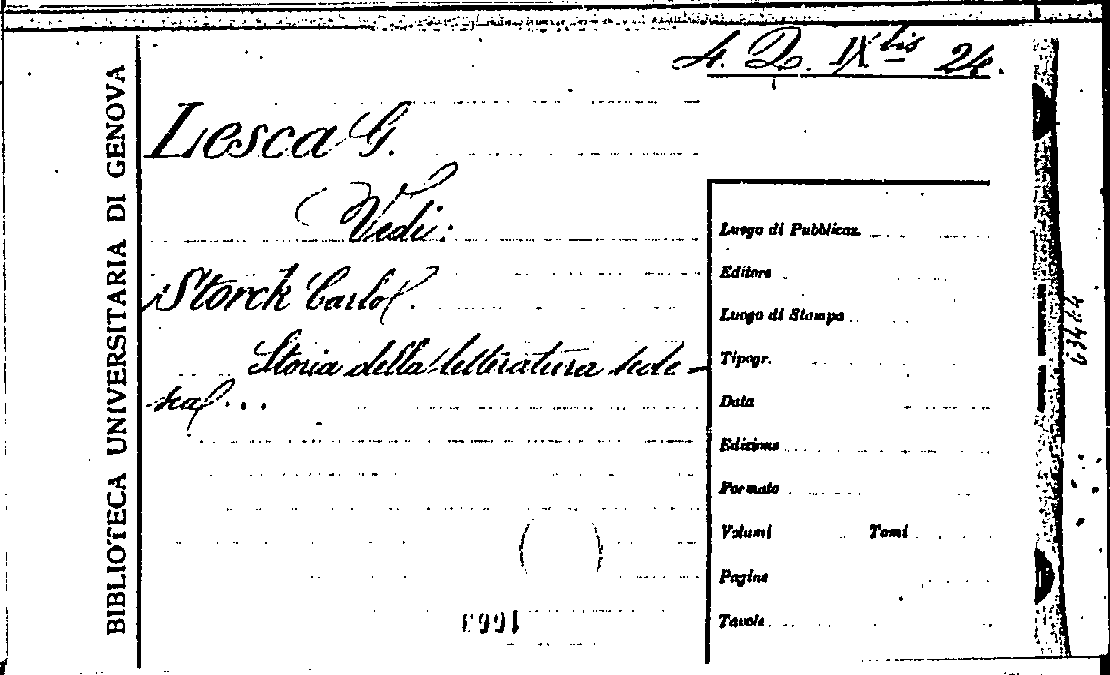 4. D. IX bis 24.
BIBLIOTECA UNIVERSITARIA DI GENOVA
Lesca G.
(Vedi:
Storck Carlo.
Storia della letteratura tede-
sca)...
Luogo di Pubblicaz.
Editore
Luogo di Stampa
Tipogr.
Data
Edizione
Formato
Volumi Tomi
Pagine
Tavole
( )